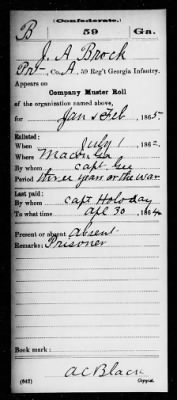 (Confederate.)
B 59 Ga.
J. A. Brock
Pvt, Co. A, 59 Reg't Georgia Infantry.
Appears on
Company Muster Roll
of the organization named above,
for Jan & Feb, 1865.
Enlisted:
When July 1, 1862.
Where Macon Ga
By whom capt.
Period three years or the war
Last paid:
By whom capt Holoday
To what time Apl 30, 1864.
Present or absent Absent
Remarks: Prisoner
Book mark:
(642) A C Black
Copyist.